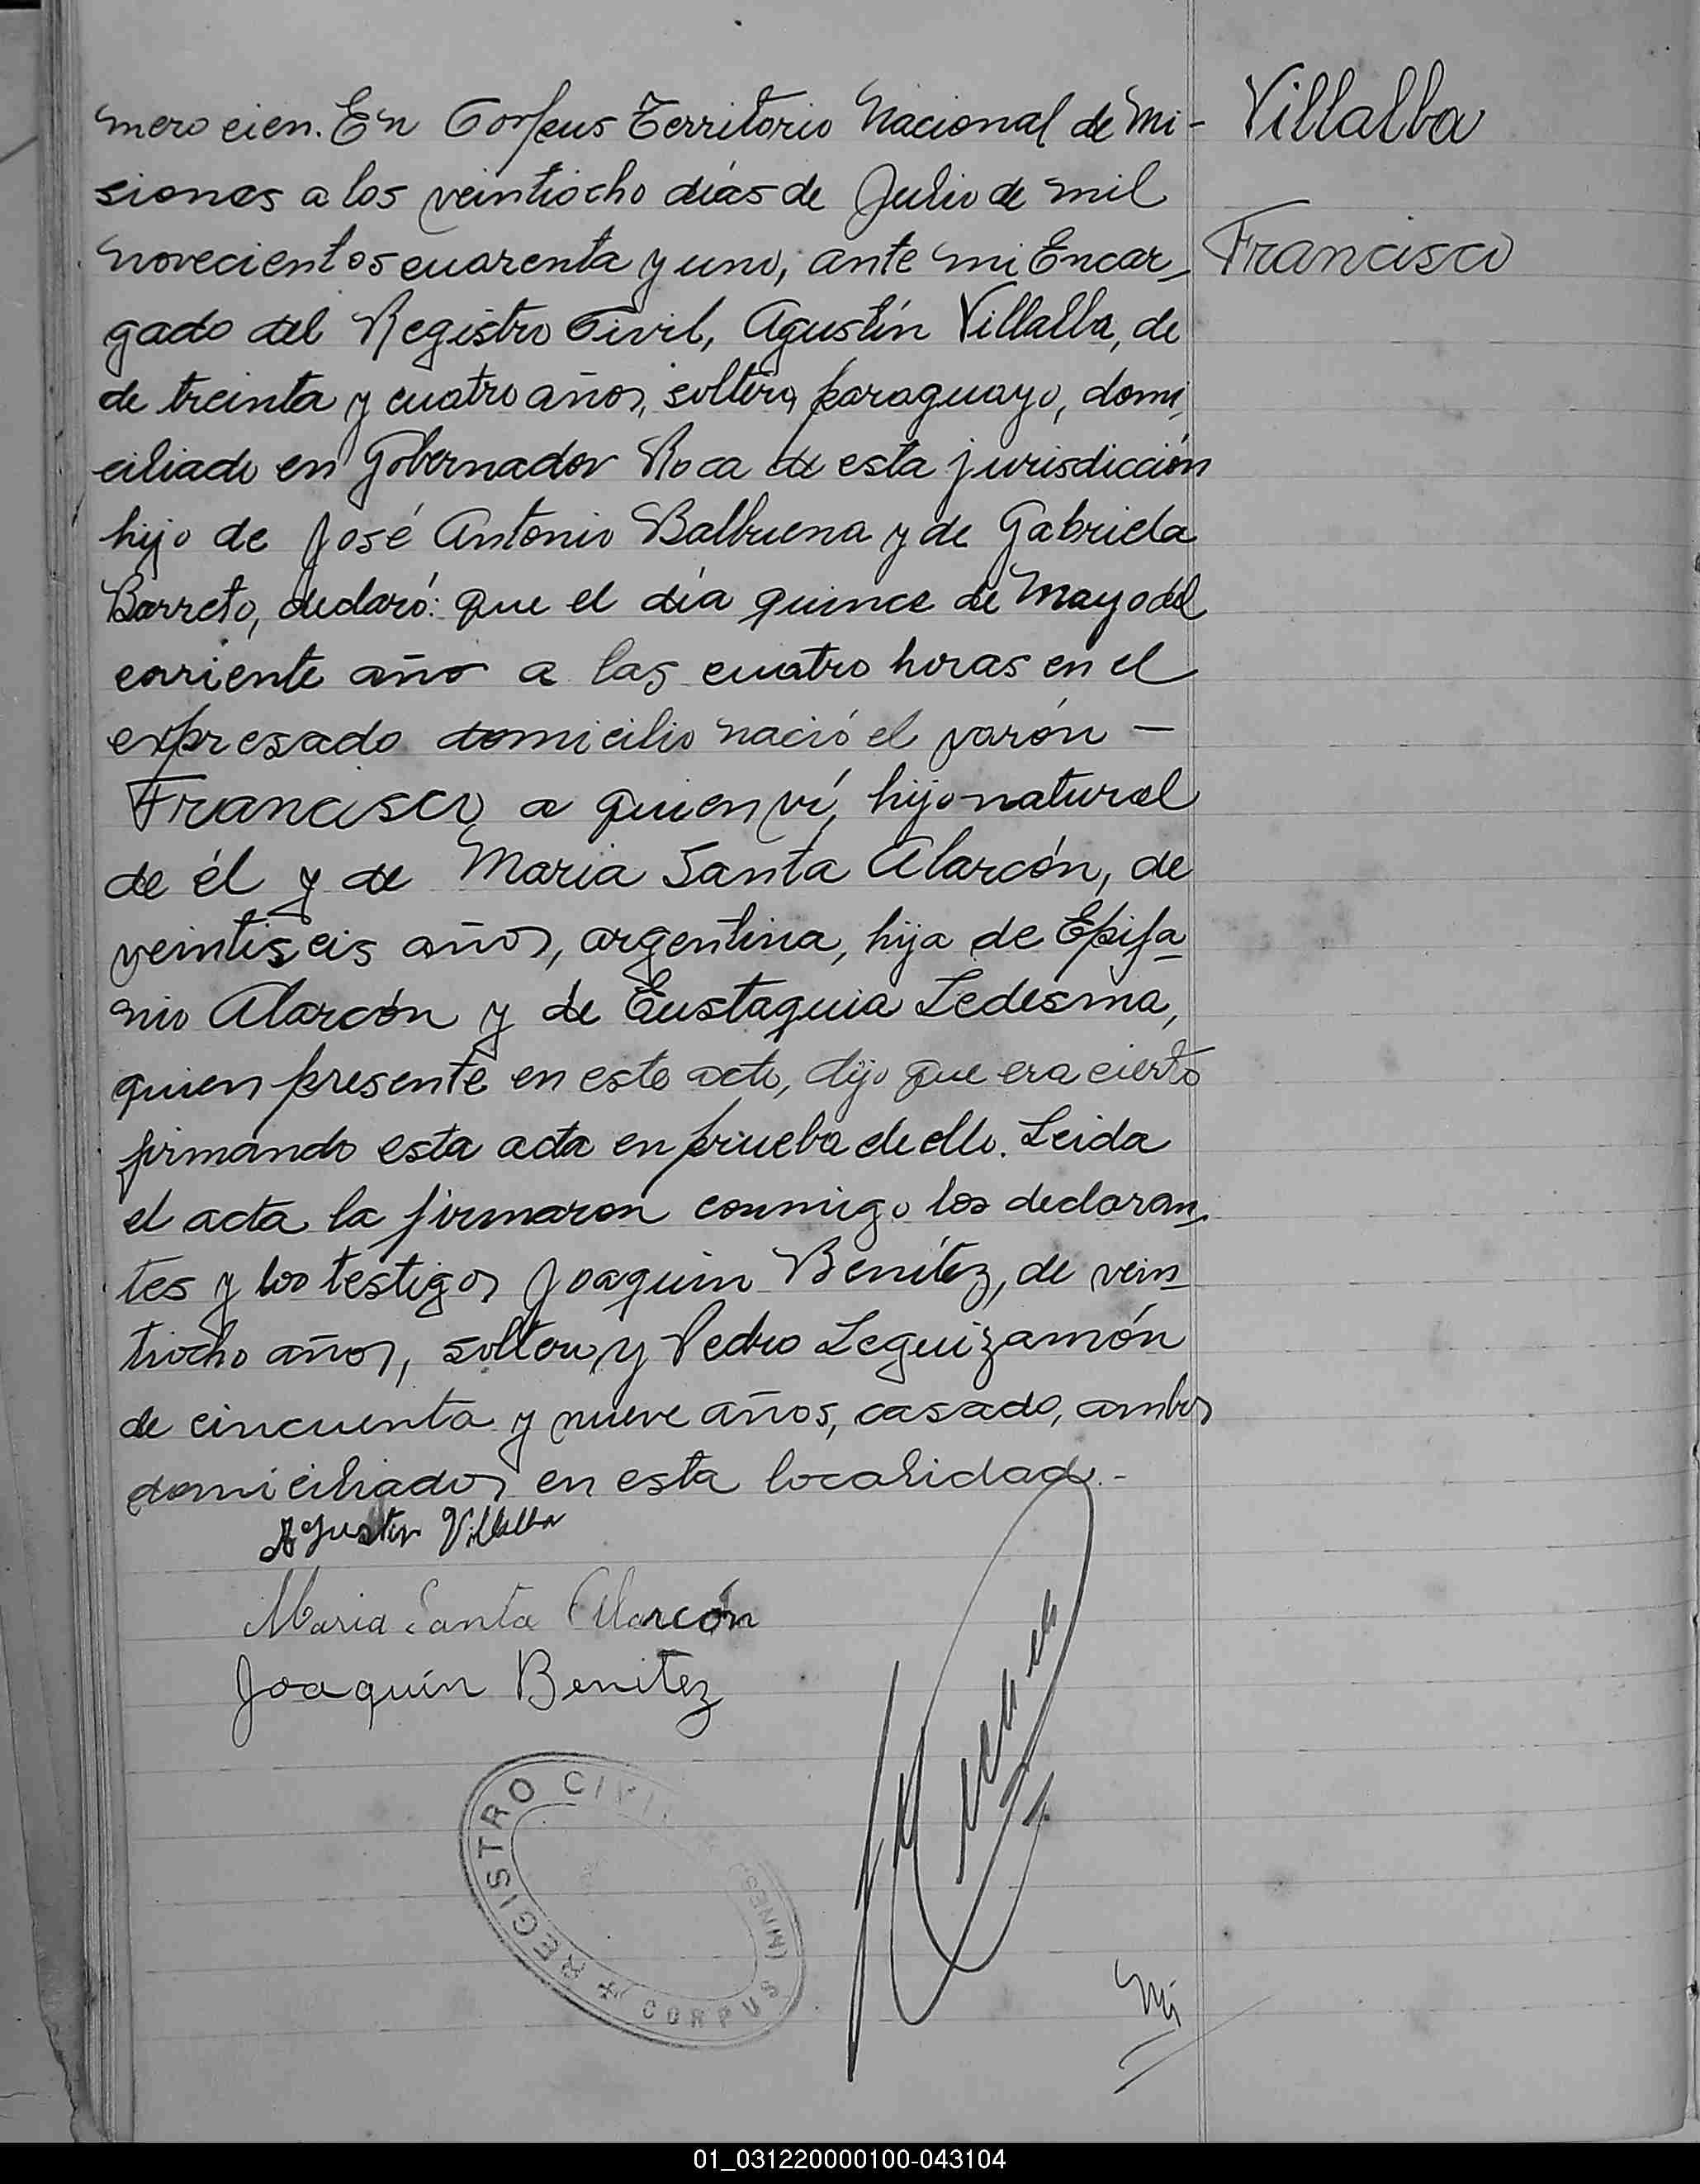 mero cien. En Corpus Territorio Nacional de Mi-
Villalba
siones a los veintiocho días de Julio de mil
novecientos cuarenta y uno, ante mi Encar-
Francisco
gado del Registro Civil, Agustín Villalba, de
de treinta y cuatro años, soltero, paraguayo, domi-
ciliado en Gobernador Roca de esta jurisdicción
hijo de José Antonio Balbuena y de Gabriela
Barreto, declaró: que el día quince de Mayo del
corriente año a las cuatro horas en el
expresado domicilio nació el varón —
Francisco, a quien ví, hijo natural
de él y de Maria Santa Alarcón, de
veintiseis años, argentina, hija de Epifa-
nio Alarcón y de Eustaquia Ledesma,
quien presente en este acto, dijo que era cierto
firmando esta acta en prueba de ello. Leida
el acta la firmaron conmigo los declaran-
tes y los testigos Joaquin Benítez, de vein-
tiocho años, soltero y Pedro Leguizamón
de cincuenta y nueve años, casado, ambos
domiciliados en esta localidad.-
Agustin Villalba
Maria Santa Alarcón
Joaquín Benitez
REGISTRO CIVIL
CORPUS (MNES)
01_031220000100-043104